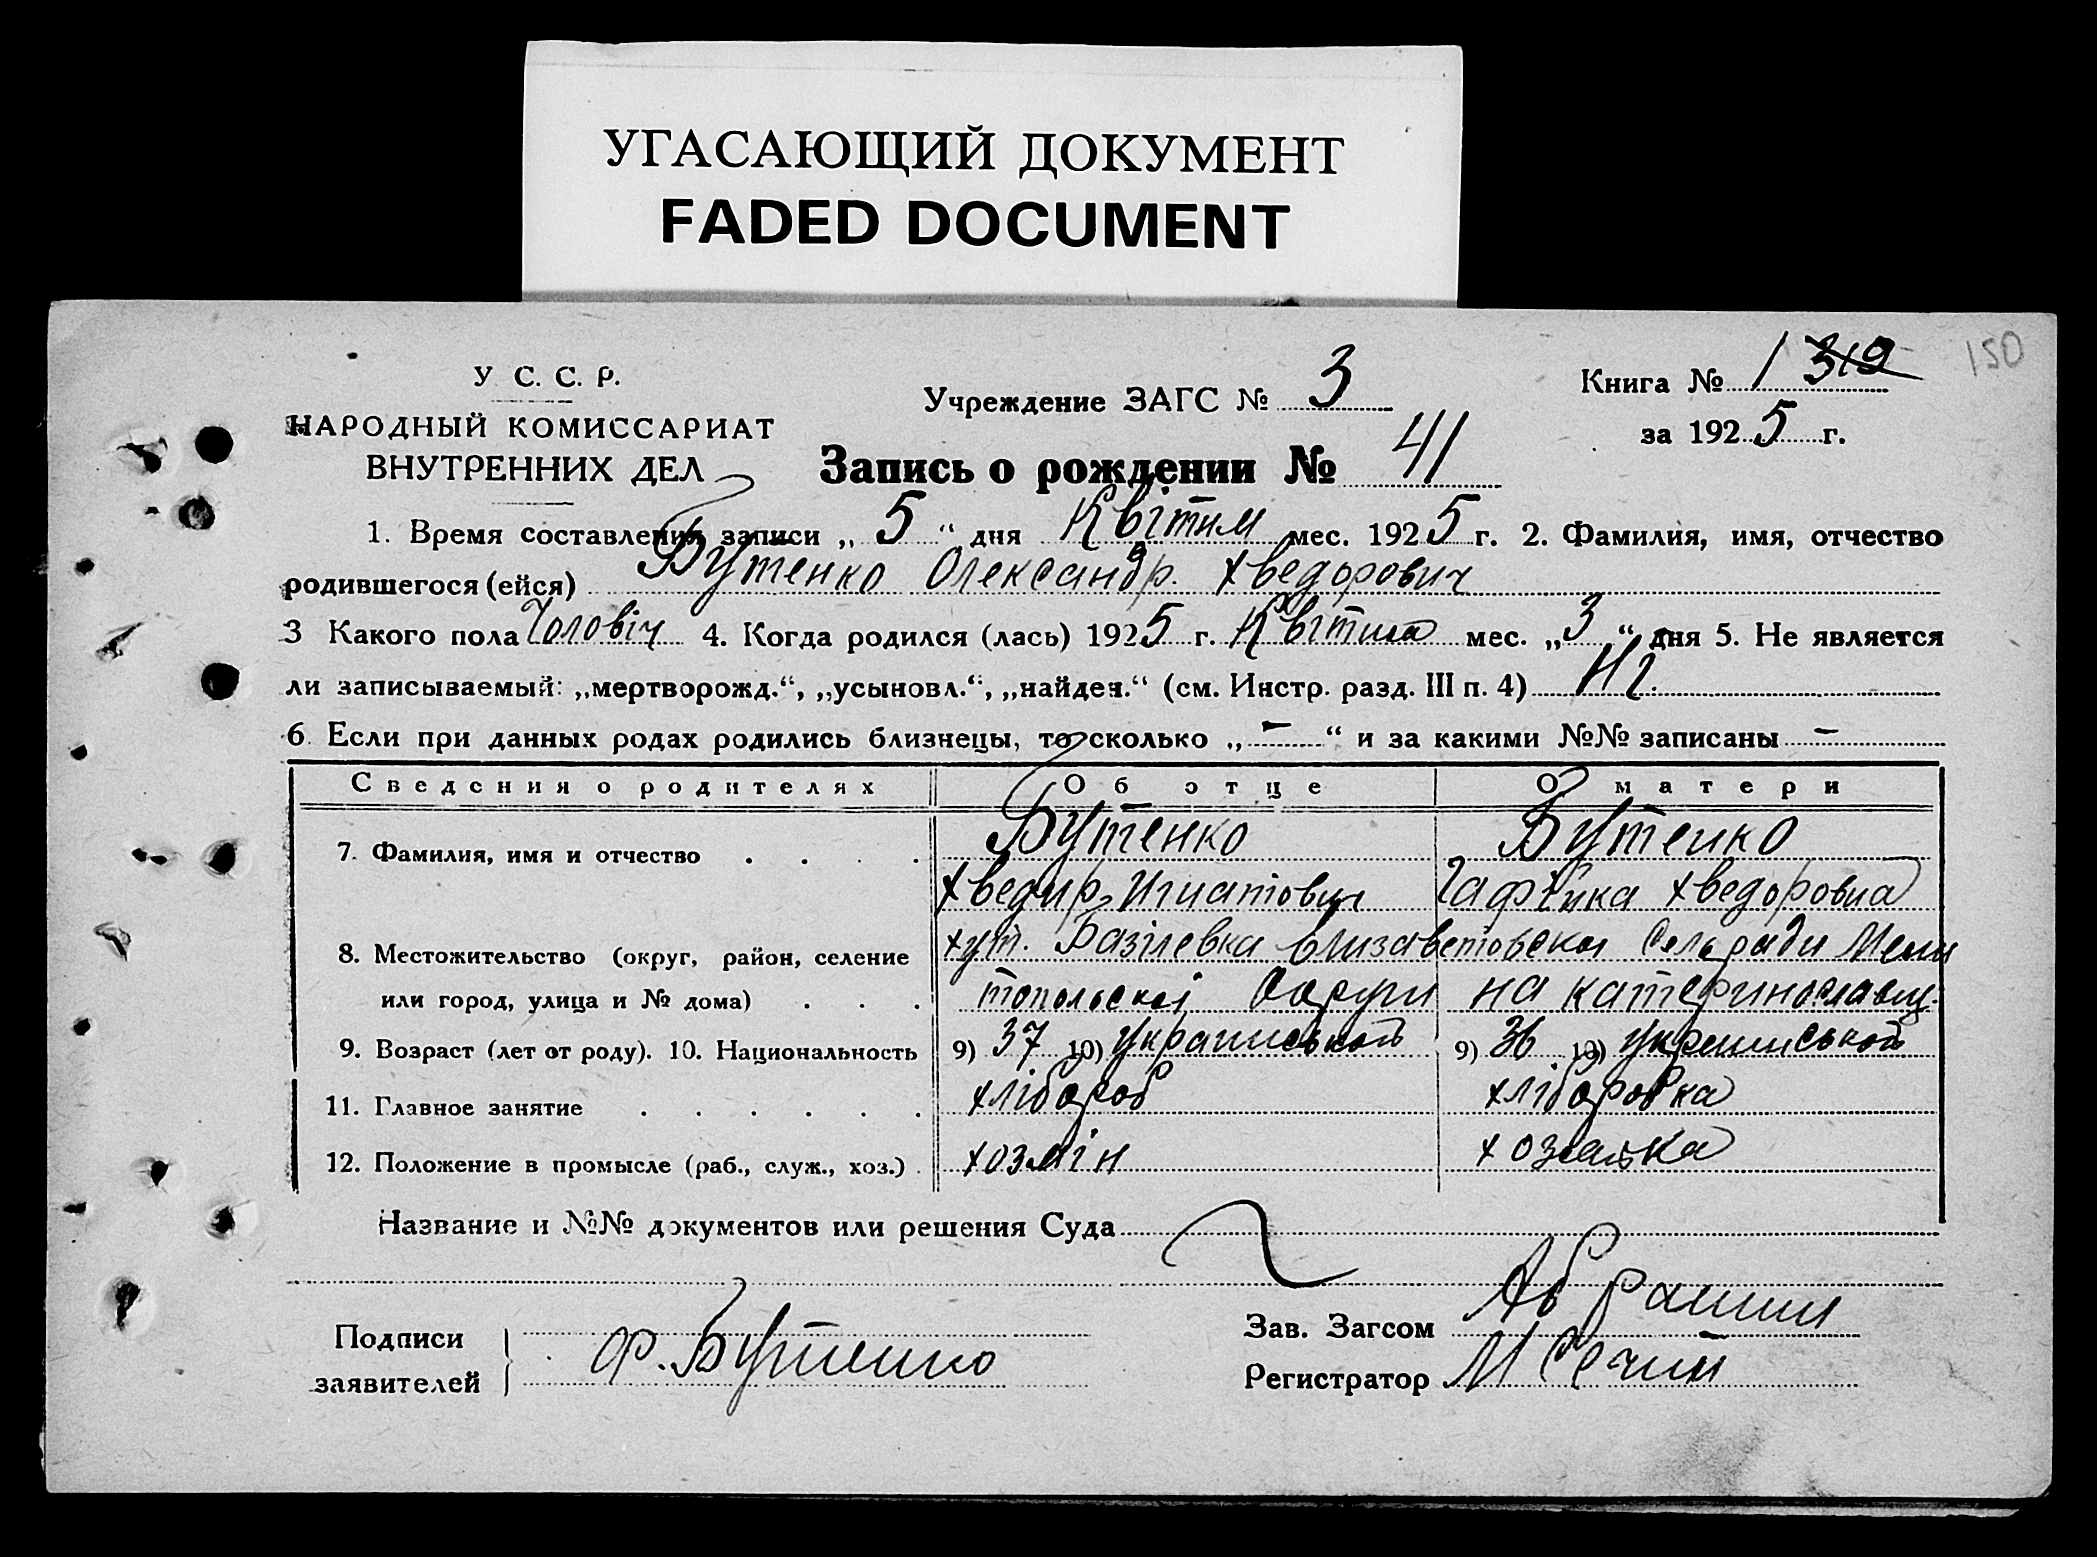 УГАСАЮЩИЙ ДОКУМЕНТ
FADED DOCUMENT
150
У С. С. Р.
НАРОДНЫЙ КОМИССАРИАТ
ВНУТРЕННИХ ДЕЛ
Учреждение ЗАГС № 3
Книга № 1 319
за 1925 г.
Запись о рождении № 41
1. Время составления записи „ 5 “ дня Квітня мес. 1925 г. 2. Фамилия, имя, отчество
родившегося (ейся) Бутенко Олександр. Хведорович
3 Какого пола Чоловіч 4. Когда родился (лась) 1925 г. Квітня мес. „ 3 “ дня 5. Не является
ли записываемый: „мертворожд.“, „усыновл.“, „найден.“ (см. Инстр. разд. III п. 4) Ні
6. Если при данных родах родились близнецы, то сколько „ – “ и за какими №№ записаны –
Сведения о родителях Об отце О матери
7. Фамилия, имя и отчество . . . . Бутенко Бутенко
Хведир Игнатович Хведоровна
8. Местожительство (округ, район, селение хут. Базілевка Елизаветовской Сельради Мели
или город, улица и № дома) . . . топольскої Округи на катеринославщ.
9. Возраст (лет от роду). 10. Национальность 9) 37 10) Украинськой 9) 36 10) Украинськой
11. Главное занятие . . . . . . хлібороб хліборобка
12. Положение в промысле (раб., служ., хоз.) . хозяін хозяька
Название и №№ документов или решения Суда
Подписи
заявителей
Ф. Бутенко
Зав. Загсом
Регистратор